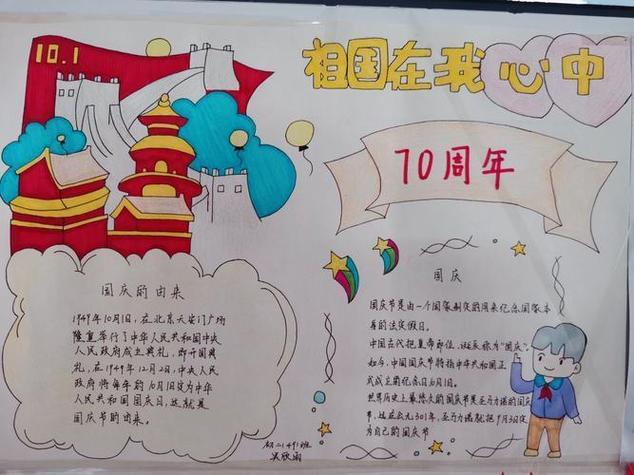 10.1
祖国在我心中
70周年
国庆的由来
1949年10月1日,在北京天安门广场
隆重举行了中华人民共和国中央
人民政府成立典礼,即开国典
礼,在1949年12月2日,中央人民
政府将每年的10月1日定为中华
人民共和国国庆日,这就是
国庆节的由来。
国庆
国庆节是由一个国家制定的用来纪念国家本
身的法定假日。
中国古代把皇帝即位、诞辰称为“国庆”。
如今,中国国庆节特指中华人民共和国正
式成立的纪念日10月1日。
世界历史上最悠久的国庆节是圣马力诺的国庆
节,远在公元301年,圣马力诺就把9月3日定
为自己的国庆节
初二1491班
吴欣雨